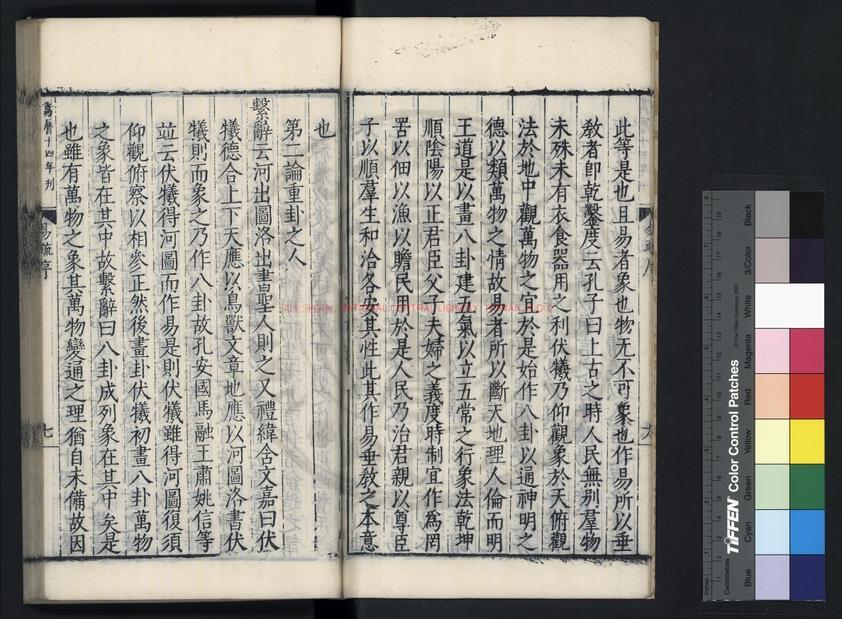 此等是也且易者象也物无不可象也作易所以垂
敎者即乾鑿度云孔子曰上古之時人民無别羣物
未殊未有衣食器用之利伏犧乃仰觀象於天俯觀
法於地中觀萬物之宜於是始作八卦以通神明之
德以類萬物之情故易者所以斷天地理人倫而明
王道是以畫八卦建五氣以立五常之行象法乾坤
順陰陽以正君臣父子夫婦之義度時制宜作爲罔
罟以佃以漁以贍民用於是人民乃治君親以尊臣
子以順羣生和洽各安其性此其作易垂敎之本意
也
第二論重卦之人
繫辭云河出圖洛出書聖人則之又禮緯含文嘉曰伏
犧德合上下天應以鳥獸文章地應以河圖洛書伏
犧則而象之乃作八卦故孔安國馬融王肅姚信等
竝云伏犧得河圖而作易是則伏犧雖得河圖復須
仰觀俯察以相參正然後畫卦伏犧初畫八卦萬物
之象皆在其中故繫辭曰八卦成列象在其中矣是
也雖有萬物之象其萬物變通之理猶自未備故因
萬曆十四年刊
易疏序
七
TIFFEN Color Control Patches
© The Tiffen Company, 2007
Centimetres
Inches
Blue
Cyan
Green
Yellow
Red
Magenta
White
3/Color
Black